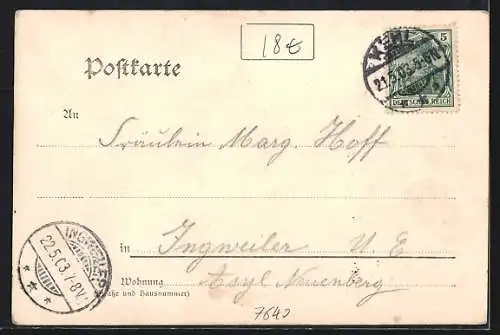 18€
Postkarte
KEHL
21.5.03.5-6N
5
DEUTSCHES REICH
An
Fräulein Marg. Hoff
in Ingweiler U. E
INGWEILER
22.5.03.7-8V.
Wohnung Asyl Neuenberg
(Straße und Hausnummer)
7640